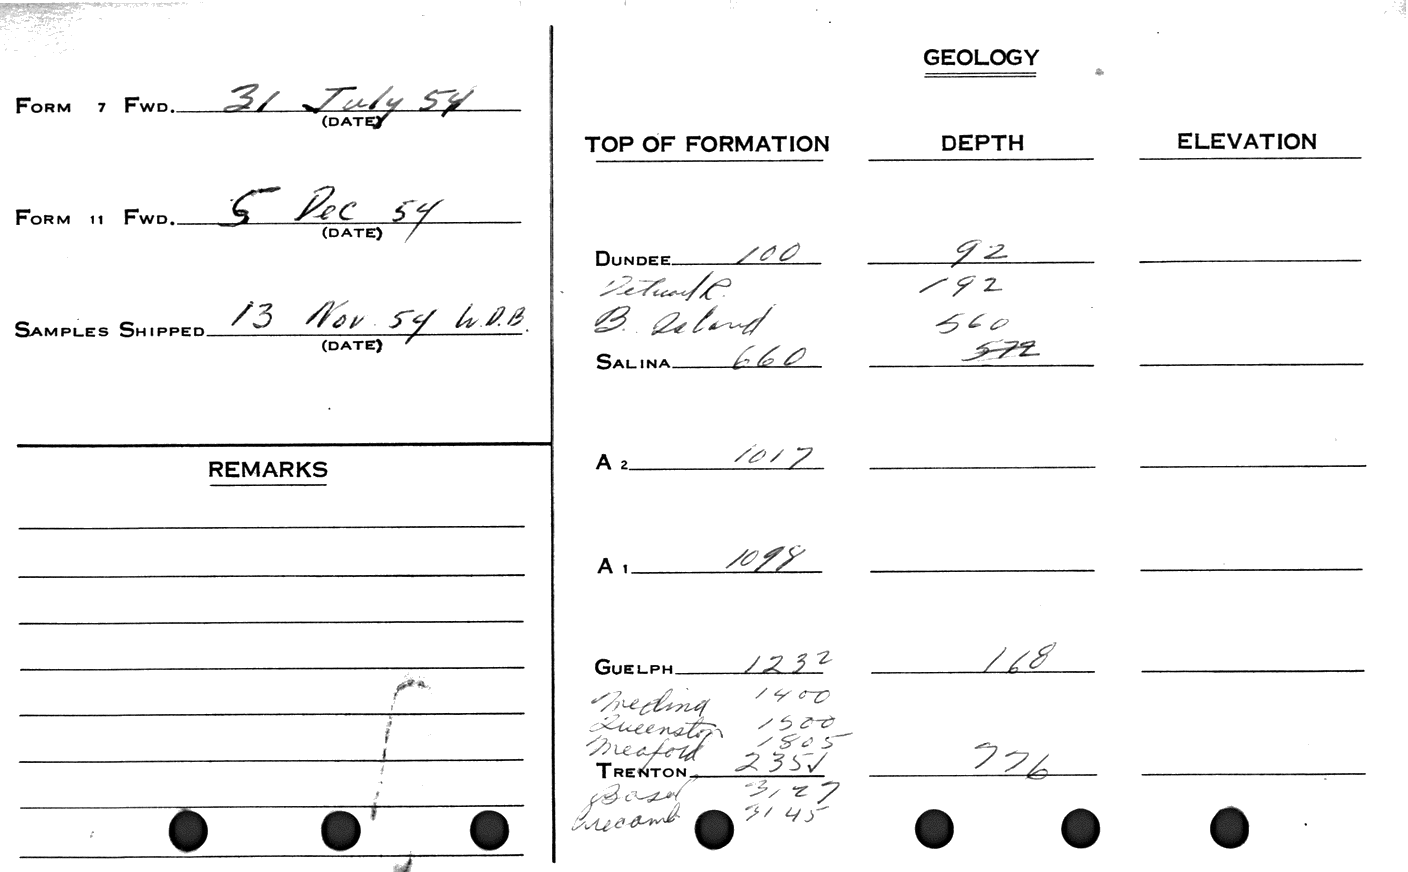 FORM 7 FWD. 31 July 54
(DATE)
FORM 11 FWD. 5 Dec 54
(DATE)
SAMPLES SHIPPED 13 Nov. 54 W.D.B.
(DATE)
REMARKS
GEOLOGY
TOP OF FORMATION DEPTH ELEVATION
DUNDEE 100 92
Detroit R. 192
B. Island 560
SALINA 660 572
A 2 1017
A 1 1098
GUELPH 1232 168
Medina 1400
Queenston 1500
Meaford 1805
TRENTON 2351 776
Basal 3127
Precamb 3145